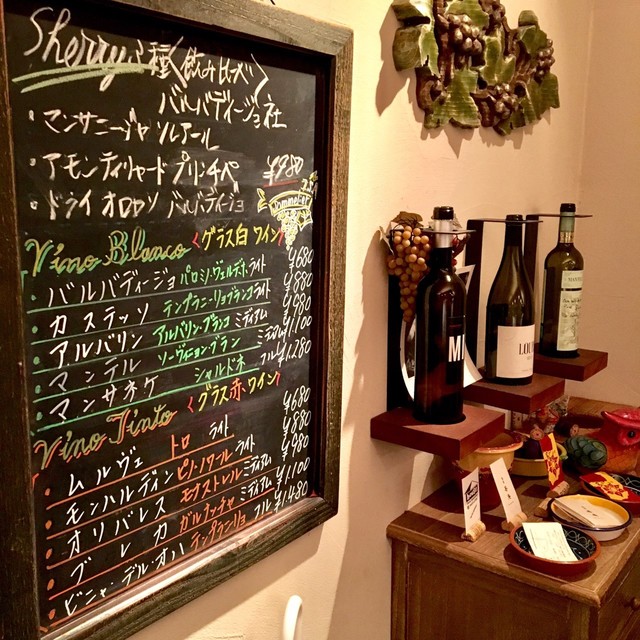 Sherry 3種〈飲み比べ〉
バルバディージョ社
・マンサニージャ ソルアール
・アモンティリャード プリンチペ ¥980
・ドライ オロロソ バルバディージョ
Sommelier
Vino Blanco 〈グラス白ワイン〉
・バルバディージョ パロミノ・ヴェルデホ ライト ¥680
・カステッソ テンプラニーリョブランコ ライト ¥880
・アルバリン アルバリン・ブランコ ミディアム ¥980
・マンテル ソーヴィニョンブラン ミディアム ¥1,100
・マンサネケ シャルドネ フル ¥1,280
Vino Tinto 〈グラス赤ワイン〉
・ムルヴェ トロ ライト ¥680
・モンハルディン ピノノワール ライト ¥880
・オリバレス モナストレル ミディアム ¥980
・ブレカ ガルナッチャ ミディアム ¥1,100
・ビニャ・デル・オハ テンプラニーリョ フル ¥1,480
MI
LOU